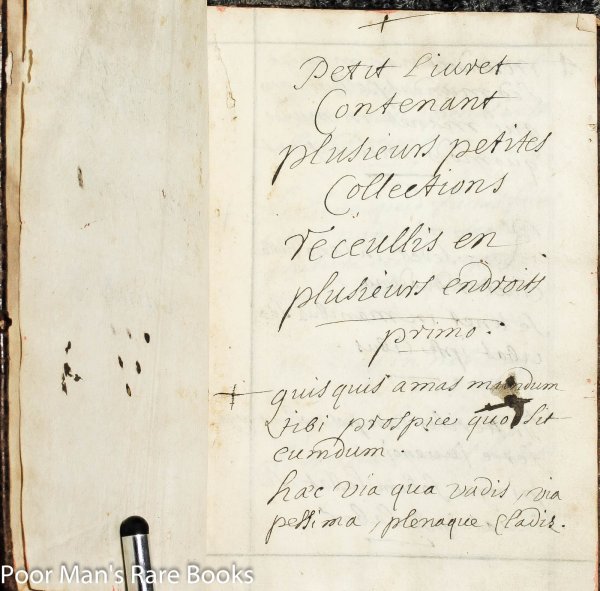 Petit Liuret
Contenant
plusieurs petites
Collections
réceullis en
plusieurs endroits
primo.
quisquis amas mundum
tibi prospice quo sit
eumdum.
haec via qua vadis, via
pessima, plenaque cladis.
Poor Man's Rare Books